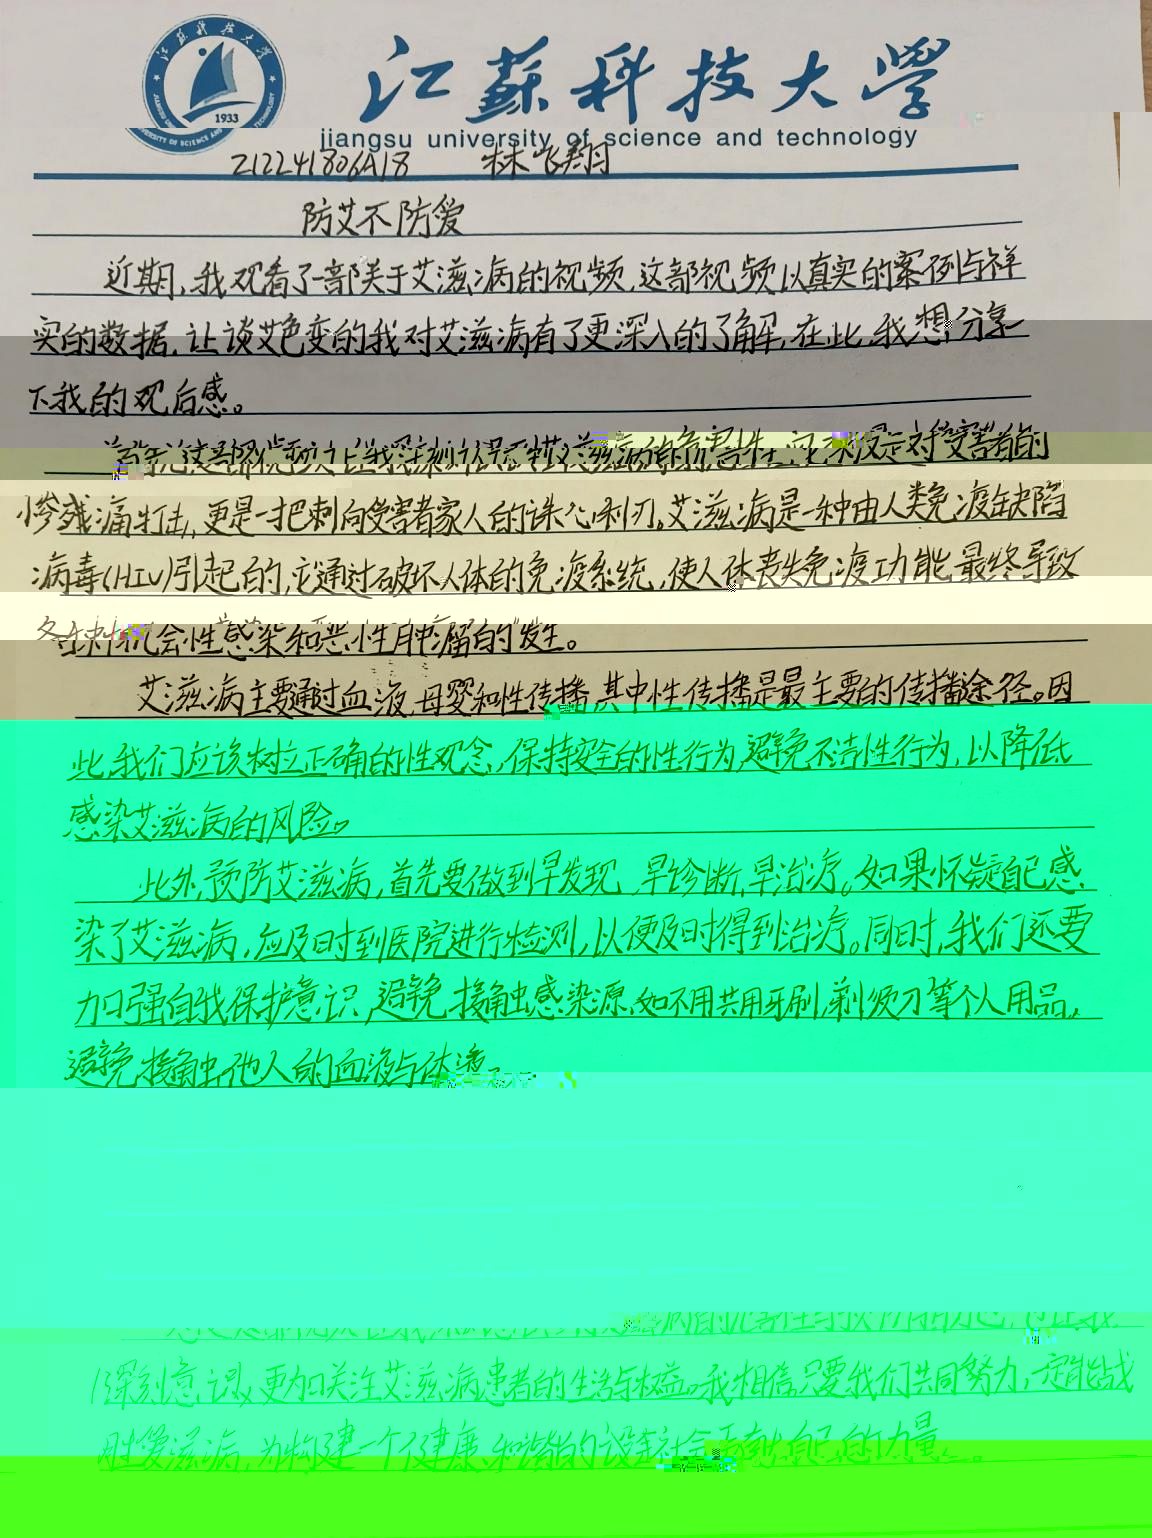 江苏科技大学
1933
jiangsu university of science and technology
212241806A18 林飞翔
防艾不防爱
近期,我观看了一部关于艾滋病的视频,这部视频以真实的案例与详
实的数据,让谈艾色变的我对艾滋病有了更深入的了解,在此,我想分享一
下我的观后感。
这部视频让我深刻认识到艾滋病的危害性,它不仅是对受害者的
惨残痛打击,更是一把刺向受害者家人的诛心利刃。艾滋病是一种由人类免疫缺陷
病毒(HIV)引起的,它通过破坏人体的免疫系统,使人体丧失免疫功能,最终导致
各种机会性感染和恶性肿瘤的发生。
艾滋病主要通过血液,母婴和性传播,其中性传播是最主要的传播途径。因
此,我们应该树立正确的性观念,保持安全的性行为,避免不洁性行为,以降低
感染艾滋病的风险。
此外,预防艾滋病,首先要做到早发现,早诊断,早治疗。如果怀疑自己感
染了艾滋病,应及时到医院进行检测,以便及时得到治疗。同时,我们还要
加强自我保护意识,避免接触感染源,如不用共用牙刷,剃须刀等个人用品,
避免接触他人的血液与体液。
病的危害性与预防措施,
深刻意识,更加关注艾滋病患者的生活与权益。我相信只要我们共同努力,一定能战
胜爱滋病,为构建一个健康、和谐的社会贡献自己的力量。